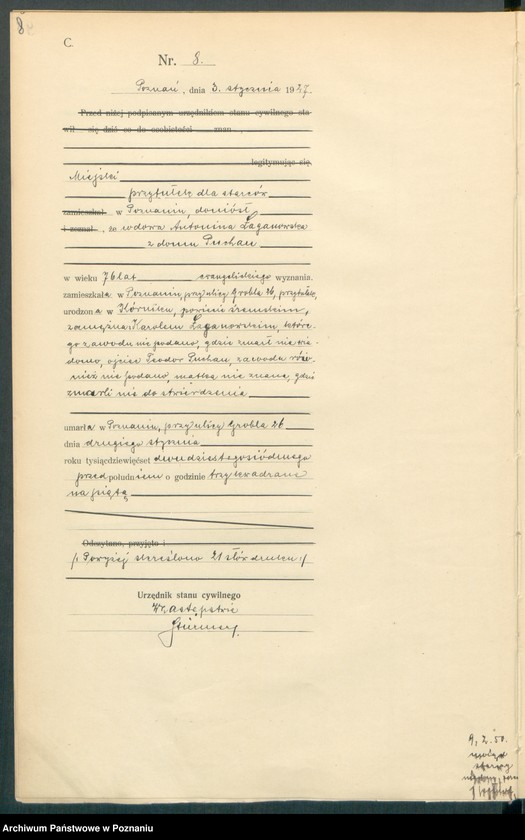 8
C.
Nr. 8.
Poznań, dnia 3. stycznia 1927.
Przed niżej podpisanym urzędnikiem stanu cywilnego sta-
wił się dziś co do osobistości znan
legitymując się
Miejski
przytułek dla starców
zamieszkał w Poznaniu, doniósł
i zeznał, że wdowa Antonina Łaganowska
z domu Puchan
w wieku 76 lat ewangelickiego wyznania.
zamieszkała w Poznaniu, przy ulicy Grobla 26, przytułek,
urodzona w Kórniku, powiecie śremskim,
zamężna z Karolem Łaganowskim, które-
go zawodu nie podano, gdzie zmarł nie wia-
domo, ojciec Teodor Puchan, zawodu rów-
nież nie podano, matka nie znana, gdzie
zmarli nie do stwierdzenia
umarła w Poznaniu, przy ulicy Grobla 26
dnia drugiego stycznia
roku tysiącdziewięćset dwudziestegosiódmego
przedpołudniem o godzinie trzy kwadranse
na piątą
Odczytano, przyjęto i
/: Powyżej skreślono 21 słów druku :/
Urzędnik stanu cywilnego
W zastępstwie
Archiwum Państwowe w Poznaniu